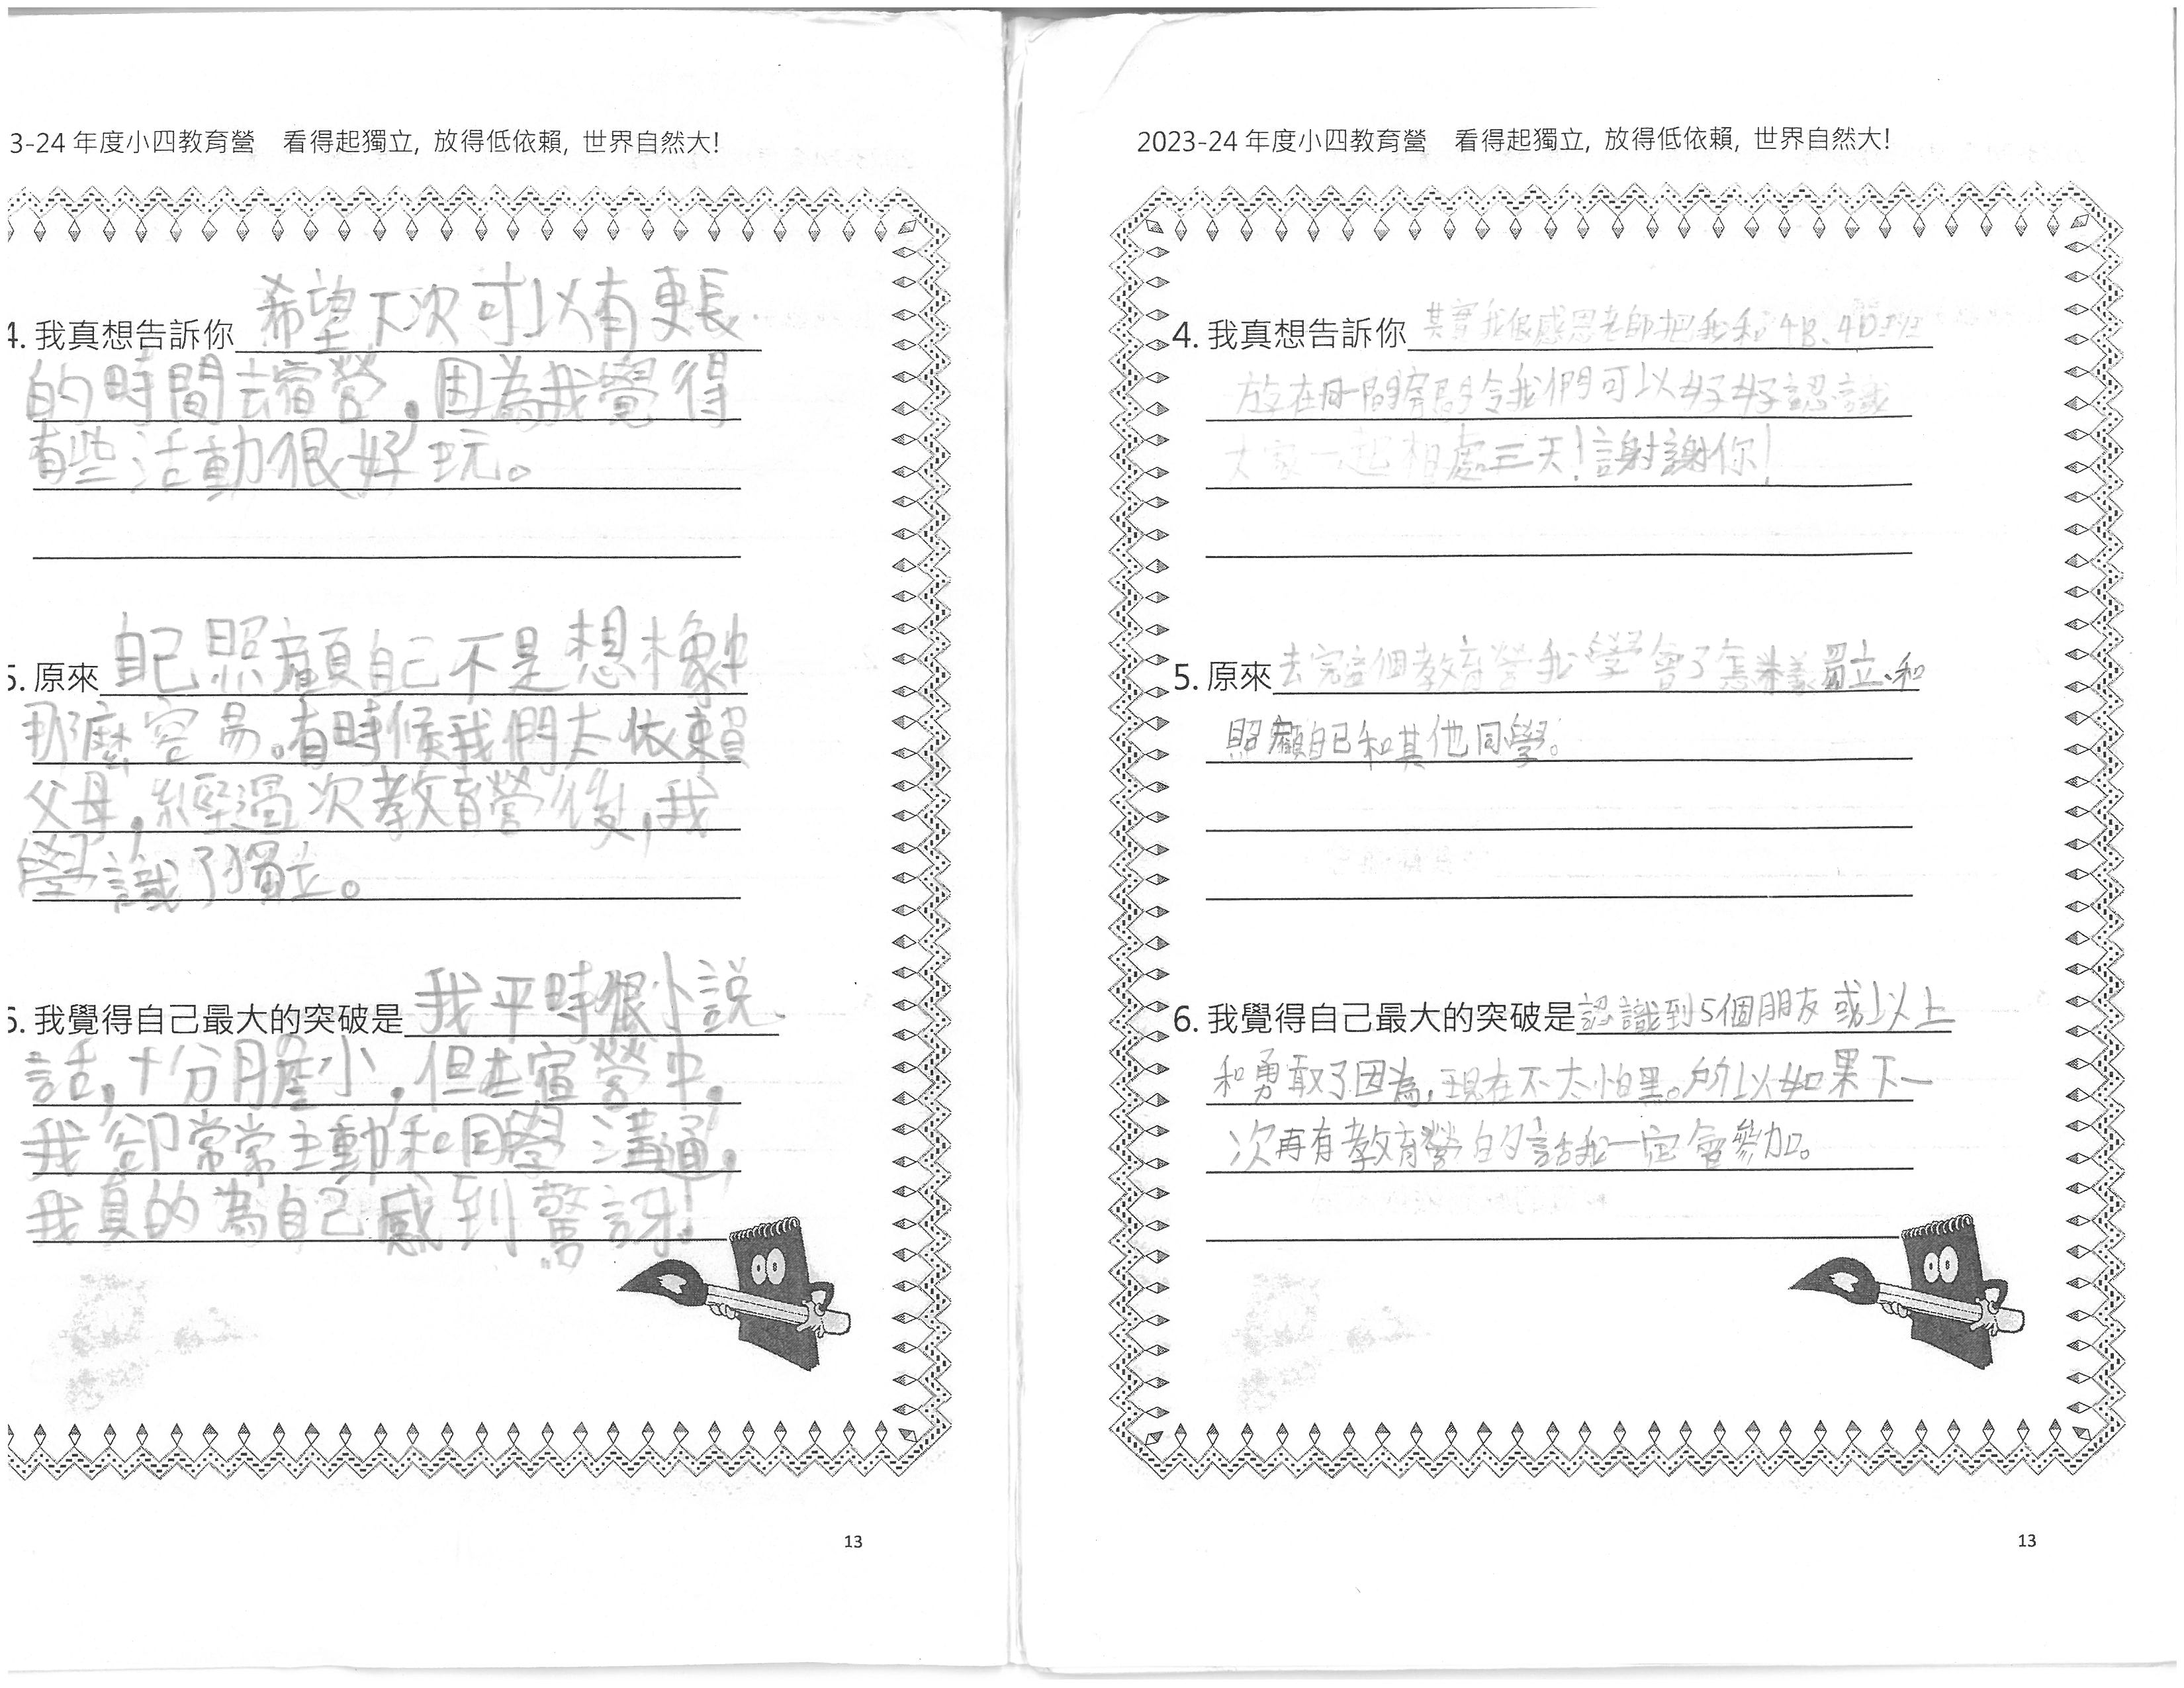 3-24 年度小四教育營　看得起獨立, 放得低依賴, 世界自然大!
4. 我真想告訴你 希望下次可以有更長
的時間去宿營，因為我覺得
有些活動很好玩。
5. 原來 自己照顧自己不是想像中
那麼容易。有時候我們太依賴
父母，經過次教育營後，我
學識了獨立。
6. 我覺得自己最大的突破是 我平時很小說
話，十分膽小，但去宿營中，
我卻常常主動和同學溝通，
我真的為自己感到驚訝!
13
2023-24 年度小四教育營　看得起獨立, 放得低依賴, 世界自然大!
4. 我真想告訴你 其實我很感恩老師把我和4B、4D班
放在同一間房間令我們可以好好認識
大家一起相處三天!謝謝你!
5. 原來 去完這個教育營我學會了怎樣獨立、和
照顧自己和其他同學。
6. 我覺得自己最大的突破是 認識到5個朋友或以上
和勇敢了因為，現在不太怕黑。所以如果下一
次再有教育營的話我一定會參加。
13